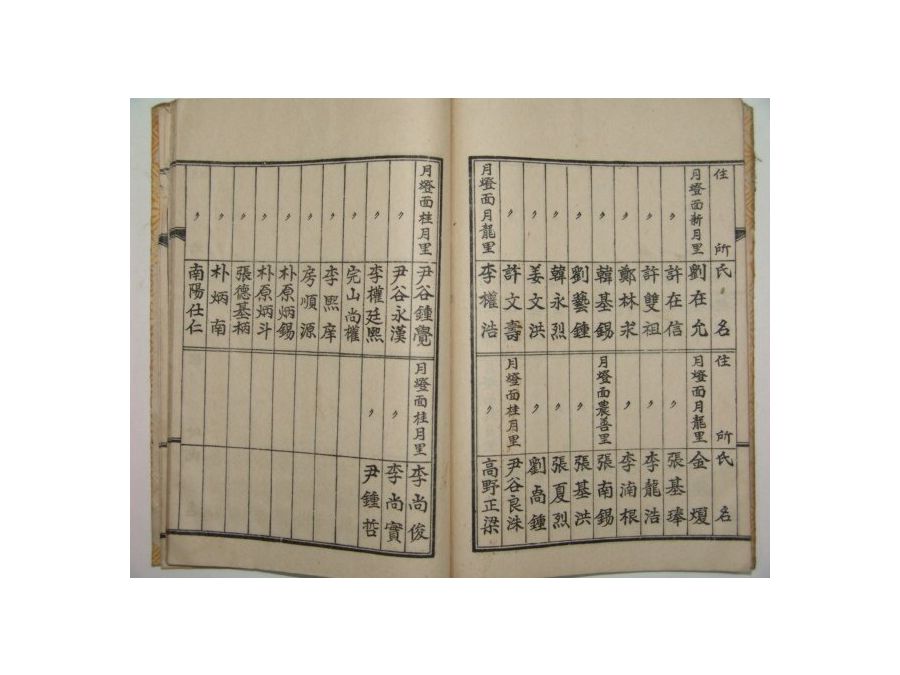 住所 氏名
月燈面新月里 劉在允
〃 許在信
〃 許雙祖
〃 鄭林求
〃 韓基錫
〃 劉藝鍾
〃 韓永烈
〃 姜文洪
〃 許文壽
月燈面月龍里 李權浩
住所 氏名
月燈面月龍里 金煆
〃 張基琫
〃 李龍浩
〃 李湳根
月燈面農善里 張南錫
〃 張基洪
〃 張夏烈
〃 劉鍾
月燈面桂月里 尹谷良洙
〃 高野正梁
月燈面桂月里 尹谷鍾覺
〃 尹谷永漢
〃 李權廷熙
〃 完山尚權
〃 李熙庠
〃 房順源
〃 朴原炳錫
〃 朴原炳斗
〃 張德基柄
〃 朴炳南
南陽仕仁
月燈面桂月里 李尚俊
〃 李尚實
〃 尹鍾哲